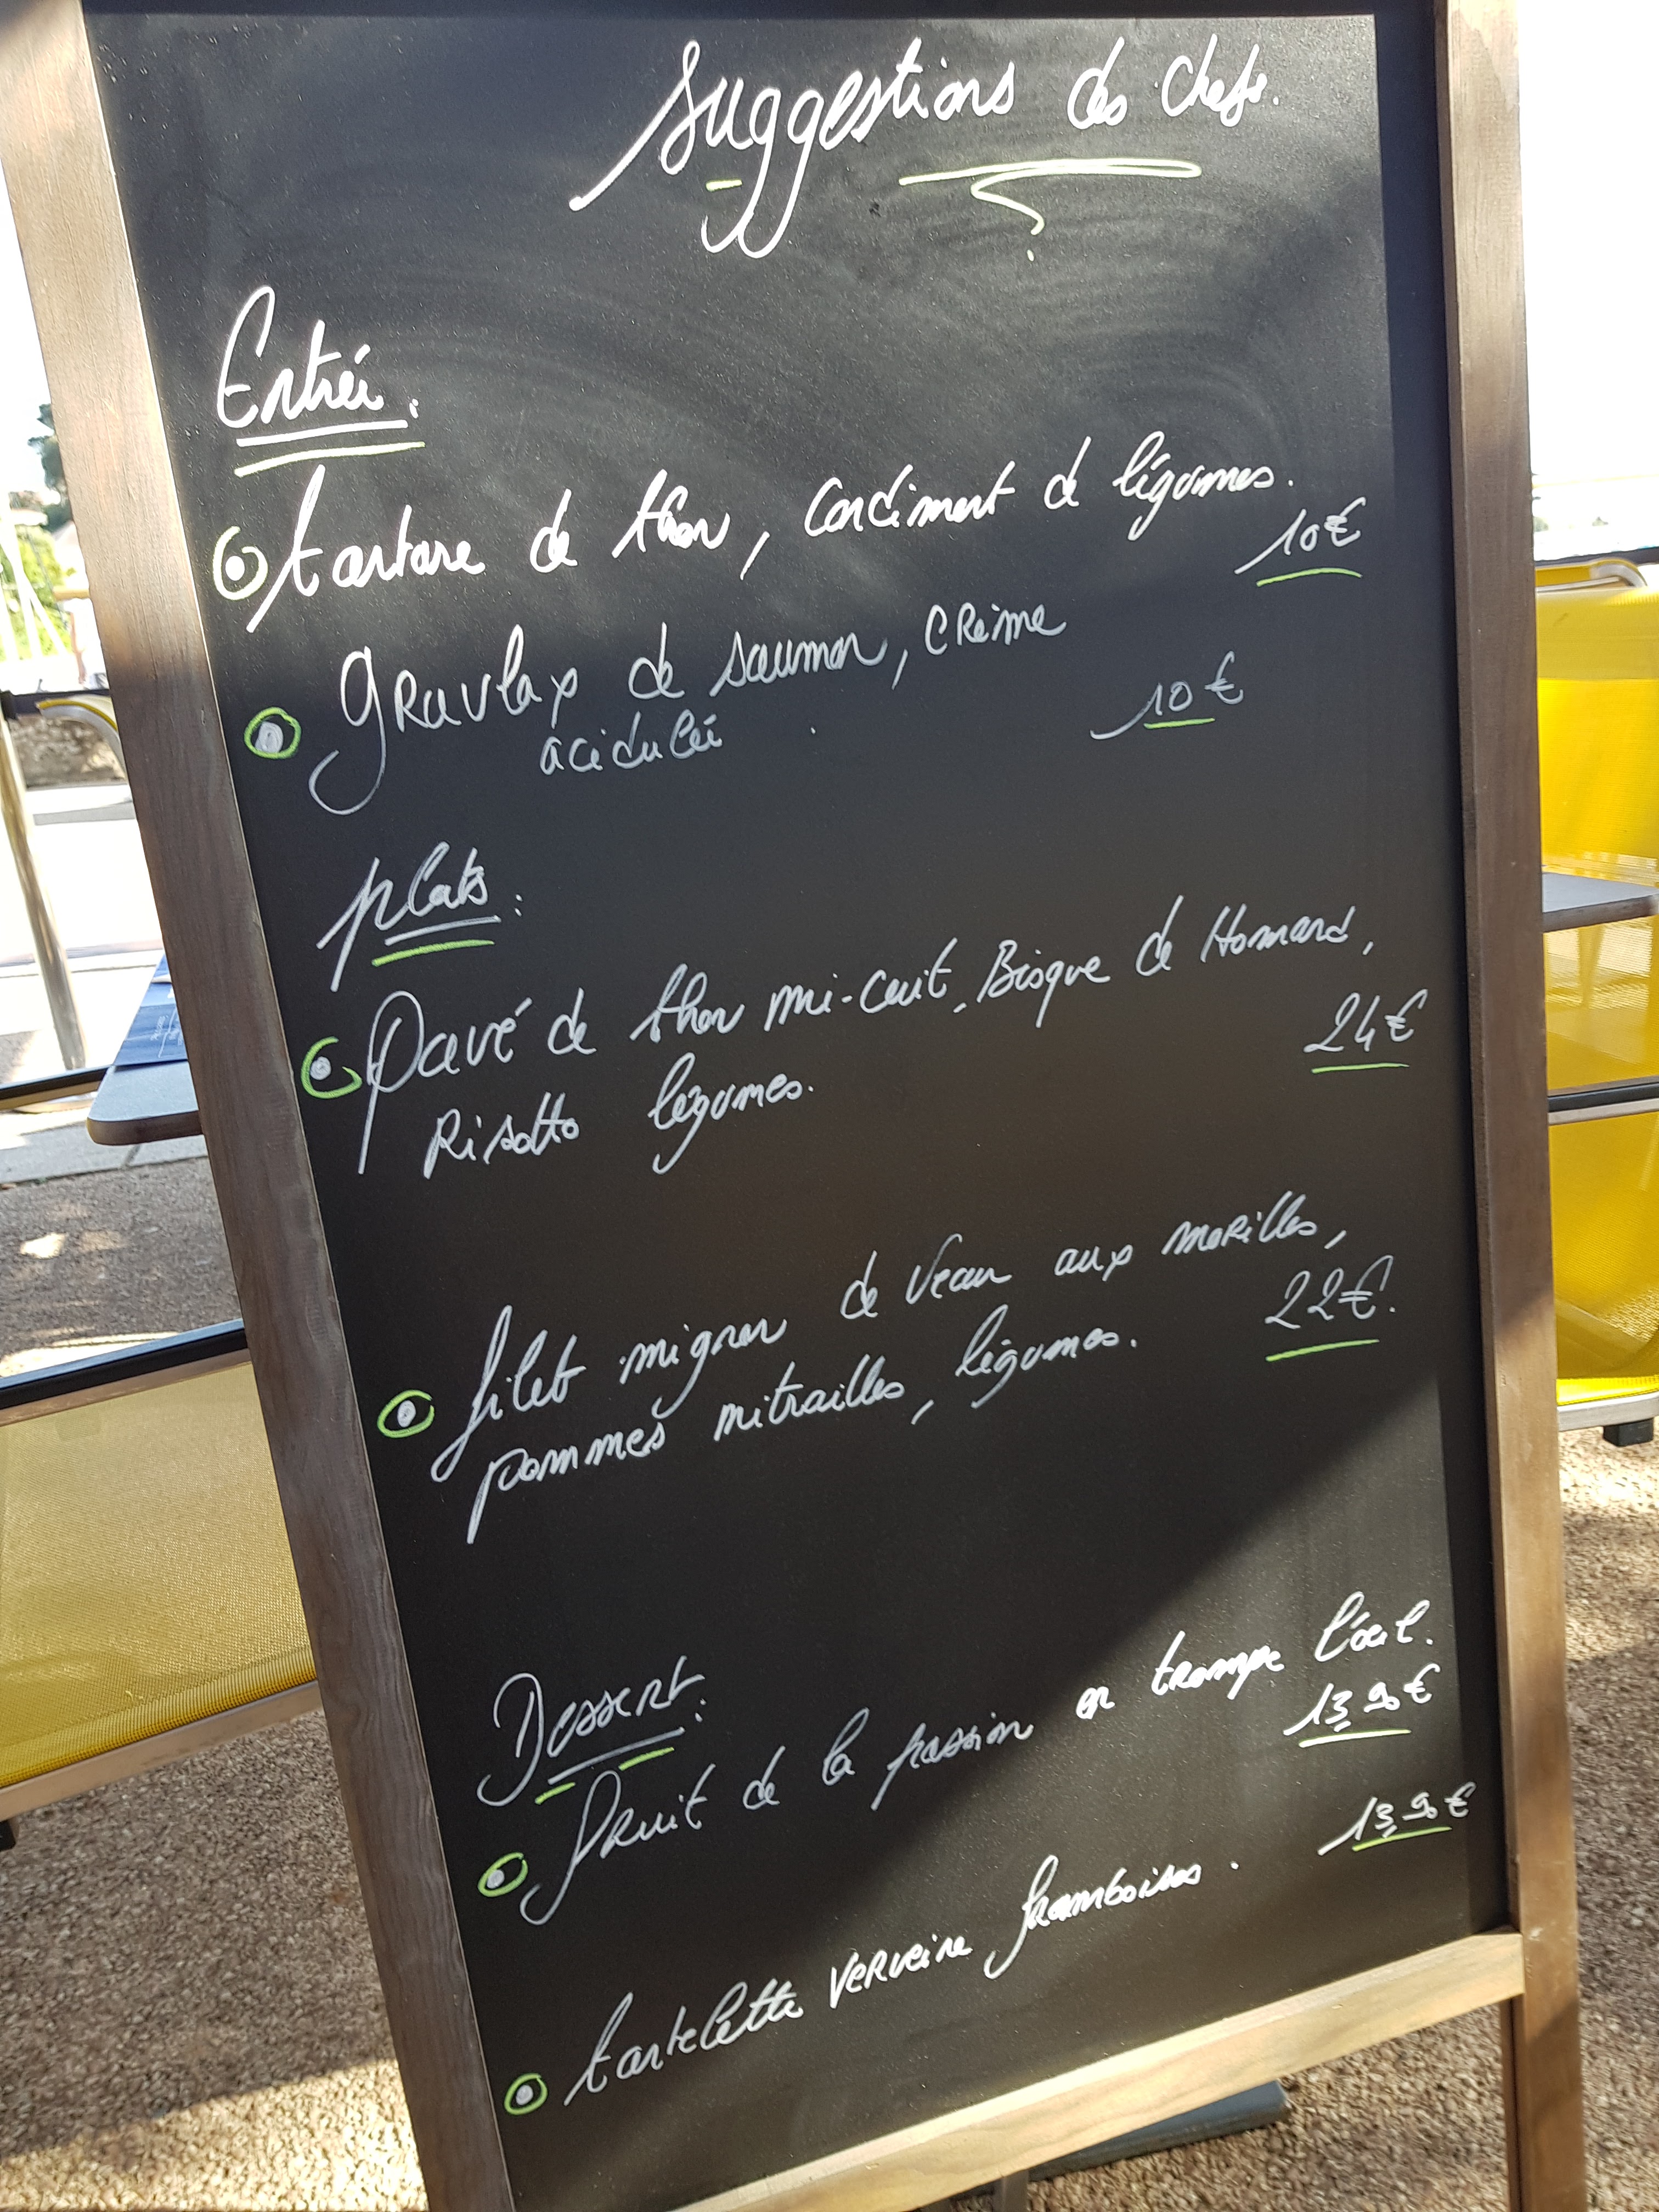 Suggestions des Chefs.
Entrée :
tartare de thon, condiment de légumes.
10€
gravlax de saumon, crème
acidulée
10€
plats :
Pavé de thon mi-cuit, Bisque de Homard,
24€
Risotto légumes.
filet mignon de Veau aux morilles,
22€.
pommes mitrailles, légumes.
Dessert :
fruit de la passion en trompe l'œil.
13,90€
13,90€
tartelette verveine framboises.